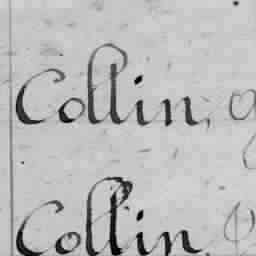 Collin,
Collin,